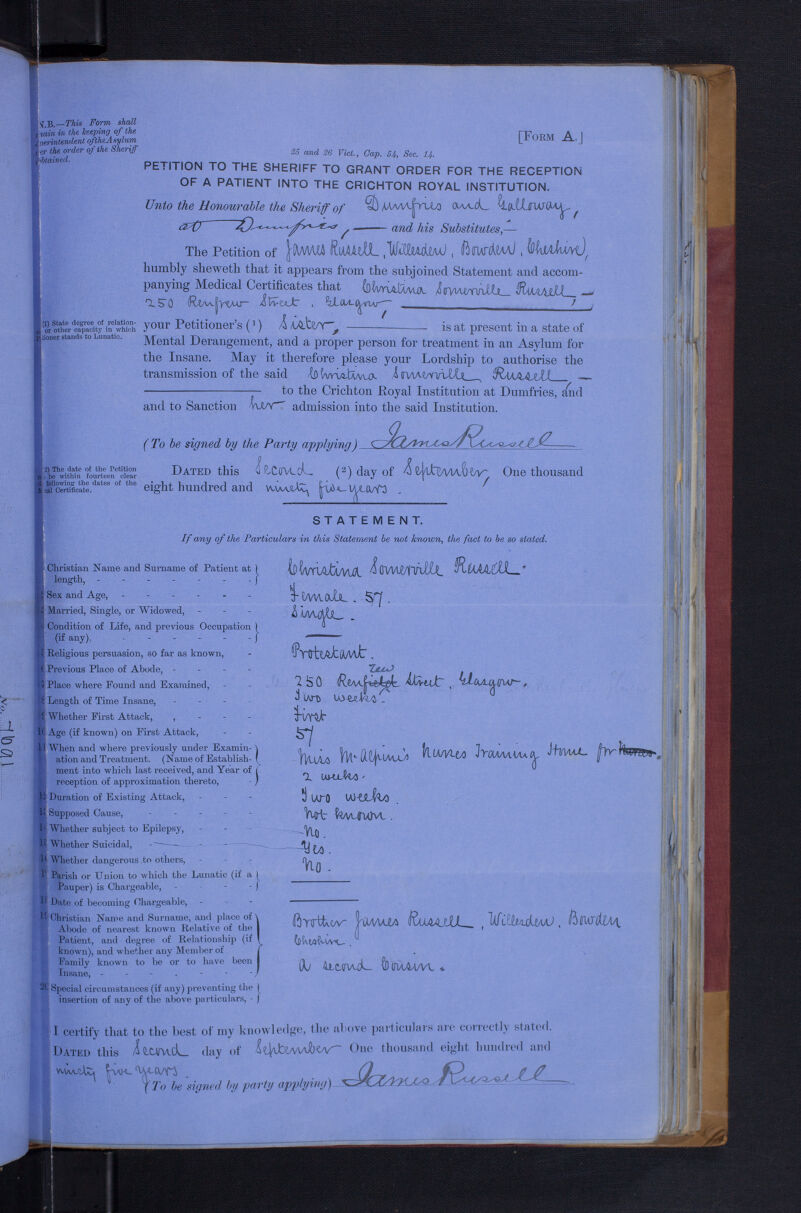 N.B.—This Form shall
in the keeping of the
of the Asylum
the order of the Sheriff
[FORM A.]
25 and 26 Vict., Cap. 54, Sec. 14.
PETITION TO THE SHERIFF TO GRANT ORDER FOR THE RECEPTION
OF A PATIENT INTO THE CRICHTON ROYAL INSTITUTION.
Unto the Honourable the Sheriff of Dumfries and Galloway,
at Dumfries, and his Substitutes,—
The Petition of James Russell, Willesden, Bowden, Cheshire,
humbly sheweth that it appears from the subjoined Statement and accom-
panying Medical Certificates that Christina Somerville Russell
250 Renfrew Street, Glasgow,
(1) State degree of relation-
or other capacity in which
stands to Lunatic.
your Petitioner's (1) Sister, is at present in a state of
Mental Derangement, and a proper person for treatment in an Asylum for
the Insane. May it therefore please your Lordship to authorise the
transmission of the said Christina Somerville Russell,
to the Crichton Royal Institution at Dumfries, and
and to Sanction her admission into the said Institution.
(To be signed by the Party applying) James Russell
The date of the Petition
be within fourteen clear
following the dates of the
Certificate.
DATED this Second (2) day of September One thousand
eight hundred and ninety five years.
STATEMENT.
If any of the Particulars in this Statement be not known, the fact to be so stated.
Christian Name and Surname of Patient at length, - Christina Somerville Russell.
Sex and Age, - Female. 57.
Married, Single, or Widowed, - Single.
Condition of Life, and previous Occupation (if any). -
Religious persuasion, so far as known, - Protestant.
Previous Place of Abode, -
Place where Found and Examined, - 250 Renfield Street, Glasgow.
Length of Time Insane, - Two weeks.
Whether First Attack, - First
Age (if known) on First Attack, - 57
When and where previously under Examin-
ation and Treatment. (Name of Establish-
ment into which last received, and Year of
reception of approximation thereto, -
Miss McAlpine's Nurses Training Home for
2 weeks.
Duration of Existing Attack, - Two weeks.
Supposed Cause, - Not known.
Whether subject to Epilepsy, - No.
Whether Suicidal, - Yes.
Whether dangerous to others, - No.
Parish or Union to which the Lunatic (if a
Pauper) is Chargeable, -
Date of becoming Chargeable, -
Christian Name and Surname, and place of
Abode of nearest known Relative of the
Patient, and degree of Relationship (if
known), and whether any Member of
Family known to be or to have been
Insane, -
Brother James Russell, Willesden, Bowden
Cheshire.
A second Cousin.
Special circumstances (if any) preventing the
insertion of any of the above particulars, -
I certify that to the best of my knowledge, the above particulars are correctly stated.
DATED this Second day of September One thousand eight hundred and
ninety five years.
(To be signed by party applying) James Russell